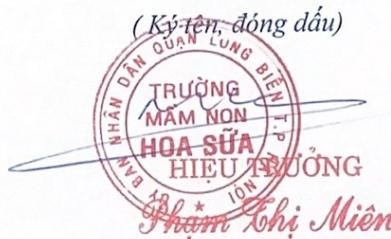 ( Ký tên, đóng dấu)
ỦY BAN NHÂN DÂN QUẬN LONG BIÊN T.P HÀ NỘI
TRƯỜNG
MẦM NON
HOA SỮA
★
HIỆU TRƯỞNG
Phạm Thị Miên